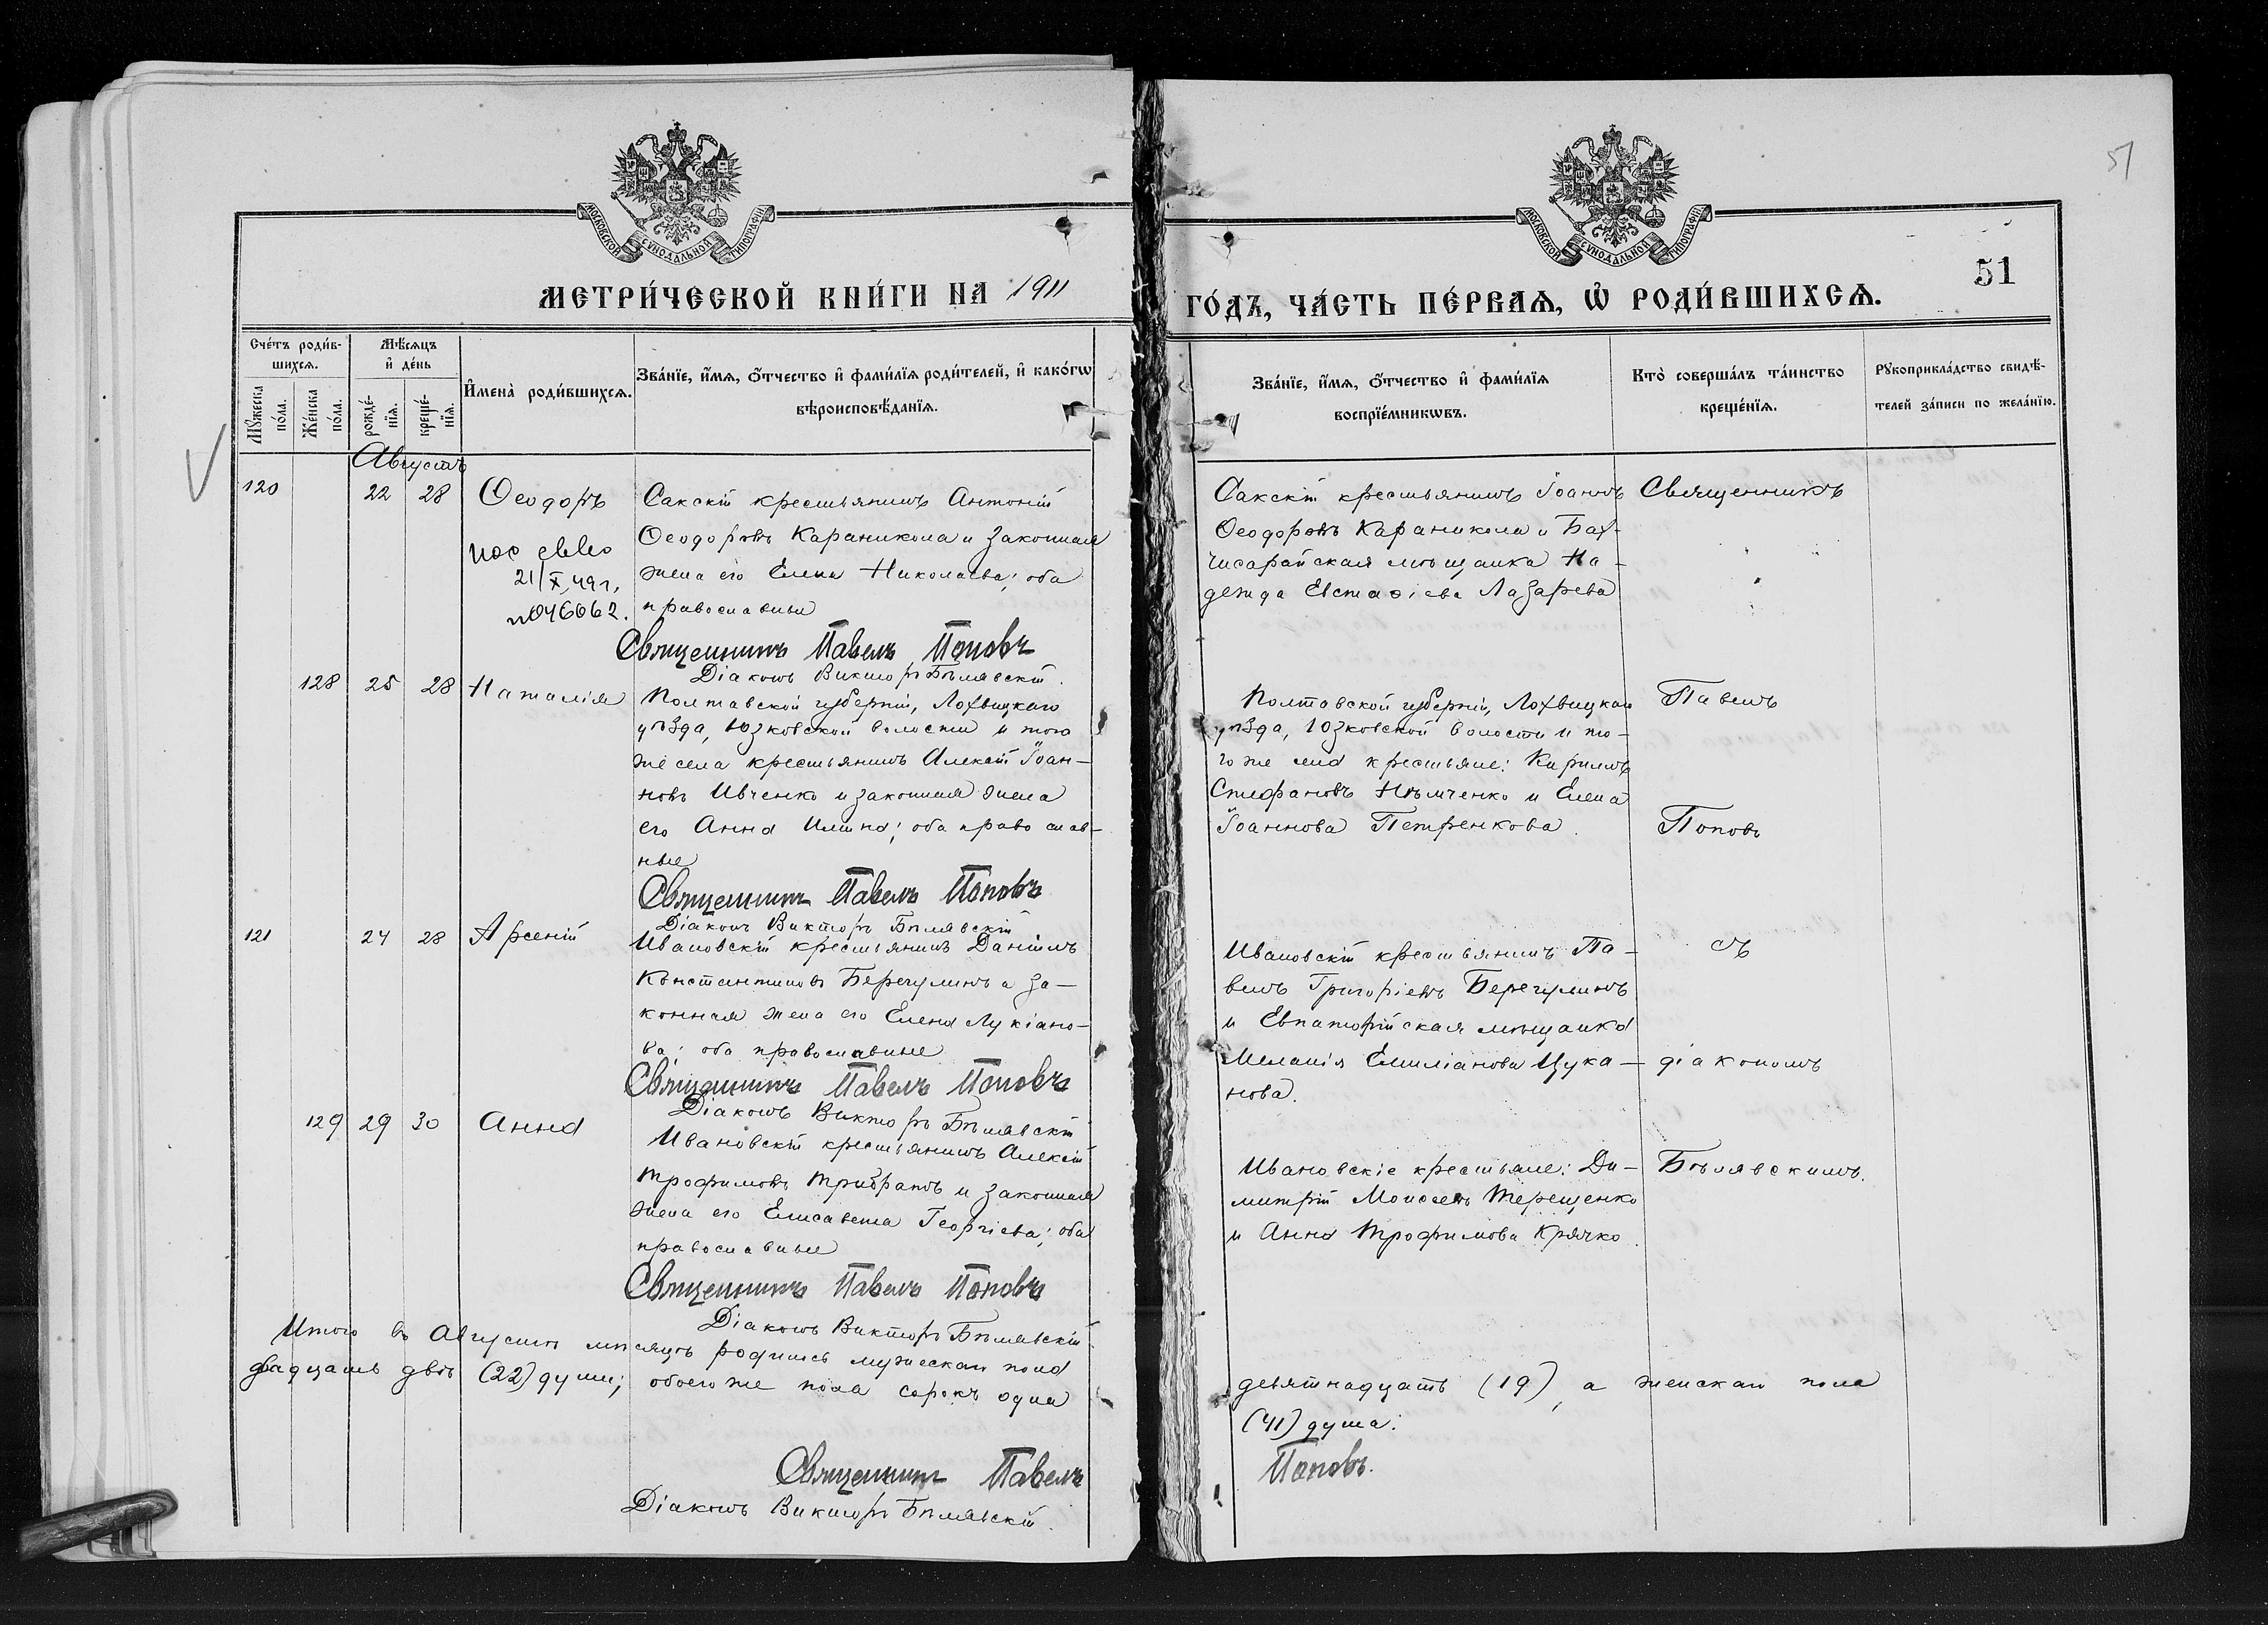 51
МОСКОВСКОЙ СѴНОДАЛЬНОЙ ТИПОГРАФІИ
МОСКОВСКОЙ СѴНОДАЛЬНОЙ ТИПОГРАФІИ
МЕТРИ́ЧЕСКОЙ КНИ́ГИ НА 1911
ГО́ДЪ, ЧА́СТЬ ПЕ́РВАѦ, Ѽ РОДИ́ВШИХСѦ.
51
Сче́тъ роди́в-
шихсѧ.
Мꙋ́жеска по́ла.
Же́нска по́ла.
Мѣ́сѧцъ
и҆ де́нь
рожде́-нїѧ.
креще́-нїѧ.
И҆мена̀ роди́вшихсѧ.
Зва́нїе, и҆́мѧ, ѻ҆́тчество и҆ фами́лїѧ роди́телей, и҆ како́гѡ
вѣроисповѣ́данїѧ.
Зва́нїе, и҆́мѧ, ѻ҆́тчество и҆ фами́лїѧ
воспрїе́мникѡвъ.
Кто̀ соверша́лъ та́инство
креще́нїѧ.
Рꙋкоприкла́дство свидѣ́-
телей за́писи по жела́нїю.
Августъ
120 22 28 Ѳеодоръ
21/X,49г,
№046062.
Сакскій крестьянинъ Антоній
Ѳеодоровъ Караникола и законная
жена его Елена Николаева; оба
православные
Священникъ Павелъ Поповъ
Діаконъ Викторъ Бѣлявскій.
Сакскій крестьянинъ Іоаннъ
Ѳеодоровъ Караникола и Бах-
чисарайская мѣщанка На-
дежда Евстаѳіева Лазарева
Священникъ
128 25 28 Наталія
Полтавской губерніи, Лохвицкаго
уѣзда, Юзковской волости и того
же села крестьянинъ Алексій Іоан-
новъ Ивченко и законная жена
его Анна Ильина; оба православ-
ные
Священникъ Павелъ Поповъ
Діаконъ Викторъ Бѣлявскій
Полтавской губерніи, Лохвицкаго
уѣзда, Юзковской волости и то-
го же села крестьяне: Кириллъ
Стефановъ Нѣмченко и Елена
Іоаннова Петренкова.
Павелъ
Поповъ
121 24 28 Арсеній
Ивановскій крестьянинъ Даніилъ
Константиновъ Беречулинъ а за-
конная жена его Елена Лукіано-
ва; оба православные
Священникъ Павелъ Поповъ
Діаконъ Викторъ Бѣлявскій
Ивановскій крестьянинъ Па-
велъ Григорьевъ Беречулинъ
и Евпаторійская мѣщанка
Меланія Емиліанова Цука-
нова.
съ
діакономъ
129 29 30 Анна
Ивановскій крестьянинъ Алексій
Трофимовъ Трибратъ и законная
жена его Елисавета Георгіева; оба
православные
Священникъ Павелъ Поповъ
Діаконъ Викторъ Бѣлявскій.
Ивановскіе крестьяне: Ди-
митрій Моисеевъ Терещенко
и Анна Трофимова Крячко.
Бѣлявскимъ.
Итого въ Августѣ мѣсяцѣ родились мужескаго пола
девятнадцать (19), а женскаго пола
двадцать двѣ (22) души; обоего же пола сорокъ одна
(41) душа.
Священникъ Павелъ
Поповъ.
Діаконъ Викторъ Бѣлявскій.